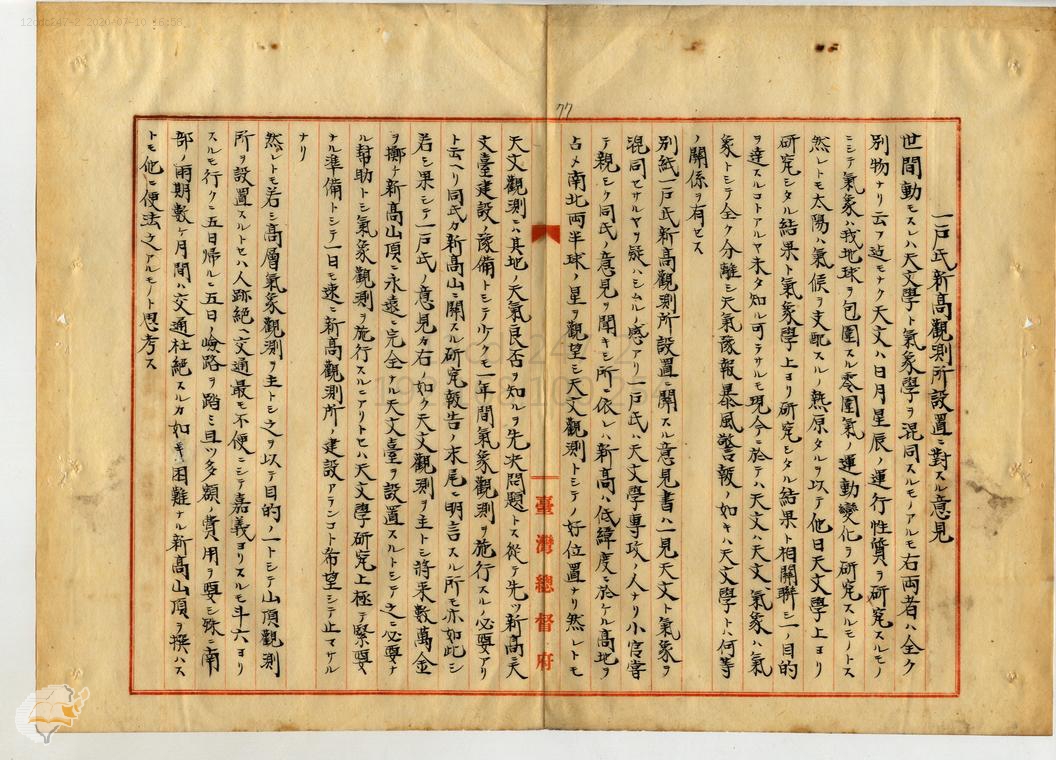 一戸氏新高觀測所設置ニ對スル意見
世間動モスレハ天文學ト氣象學ヲ混同スルモノアルモ右両者ハ全ク
別物ナリ云フ迠モナク天文ハ日月星辰ノ運行性質ヲ研究スルモノ
ニシテ氣象ハ我地球ヲ包圍スル雰圍氣ノ運動變化ヲ研究スルモノトス
然レトモ太陽ハ氣候ヲ支配スルノ熱原タルヲ以テ他日天文學上ヨリ
研究シタル結果ト氣象學上ヨリ研究シタル結果ト相關聯シ一ノ目的
ヲ達スルコトアルヤ未タ知ル可ラサルモ現今ニ於テハ天文ハ天文氣象ハ氣
象トシテ全ク分離シ天氣豫報暴風警報ノ如キハ天文學トハ何等
ノ關係ヲ有セス
別紙一戸氏新高觀測所設置ニ關スル意見書ハ一見天文ト氣象ヲ
混同セサルヤヲ疑ハシムルノ感アリ一戸氏ハ天文學專攻ノ人ナリ小官嘗
テ親シク同氏ノ意見ヲ聞キシ所ニ依レハ新高ハ低緯度ニ於ケル高地ヲ
占メ南北両半球ノ星ヲ觀望シ天文觀測トシテノ好位置ナリ然レトモ
77
臺灣總督府
天文觀測ニハ其地ノ天氣良否ヲ知ルヲ先決問題トス從テ先ツ新高ニ天
文臺建設ノ豫備トシテ少クモ一年間氣象觀測ヲ施行スルノ必要アリ
ト云ヘリ同氏カ新高山ニ關スル研究報告ノ末尾ニ明言スル所モ亦如此シ
若シ果シテ一戸氏ノ意見カ右ノ如ク天文觀測ヲ主トシ將来數萬金
ヲ擲チ新高山頂ニ永遠ニ完全ナル天文臺ヲ設置スルトシテ之ニ必要ナ
ル幇助トシ氣象觀測ヲ施行スルニアリトセハ天文學研究上極テ緊要
ナル準備トシテ一日モ速ニ新高觀測所ノ建設アランコト希望シテ止マサル
ナリ
然レトモ若シ高層氣象觀測ヲ主トシ之ヲ以テ目的ノ一トシテ山頂觀測
所ヲ設置スルトセハ人跡絶ヘ交通最モ不便ニシテ嘉義ヨリスルモ斗六ヨリ
スルモ行クニ五日帰ルニ五日ノ嶮路ヲ踏ミ且ツ多額ノ費用ヲ要シ殊ニ南
部ノ雨期數ヶ月間ハ交通杜絶スルカ如キ困難ナル新高山頂ヲ撰ハス
トモ他ニ便法之アルモノト思考ス